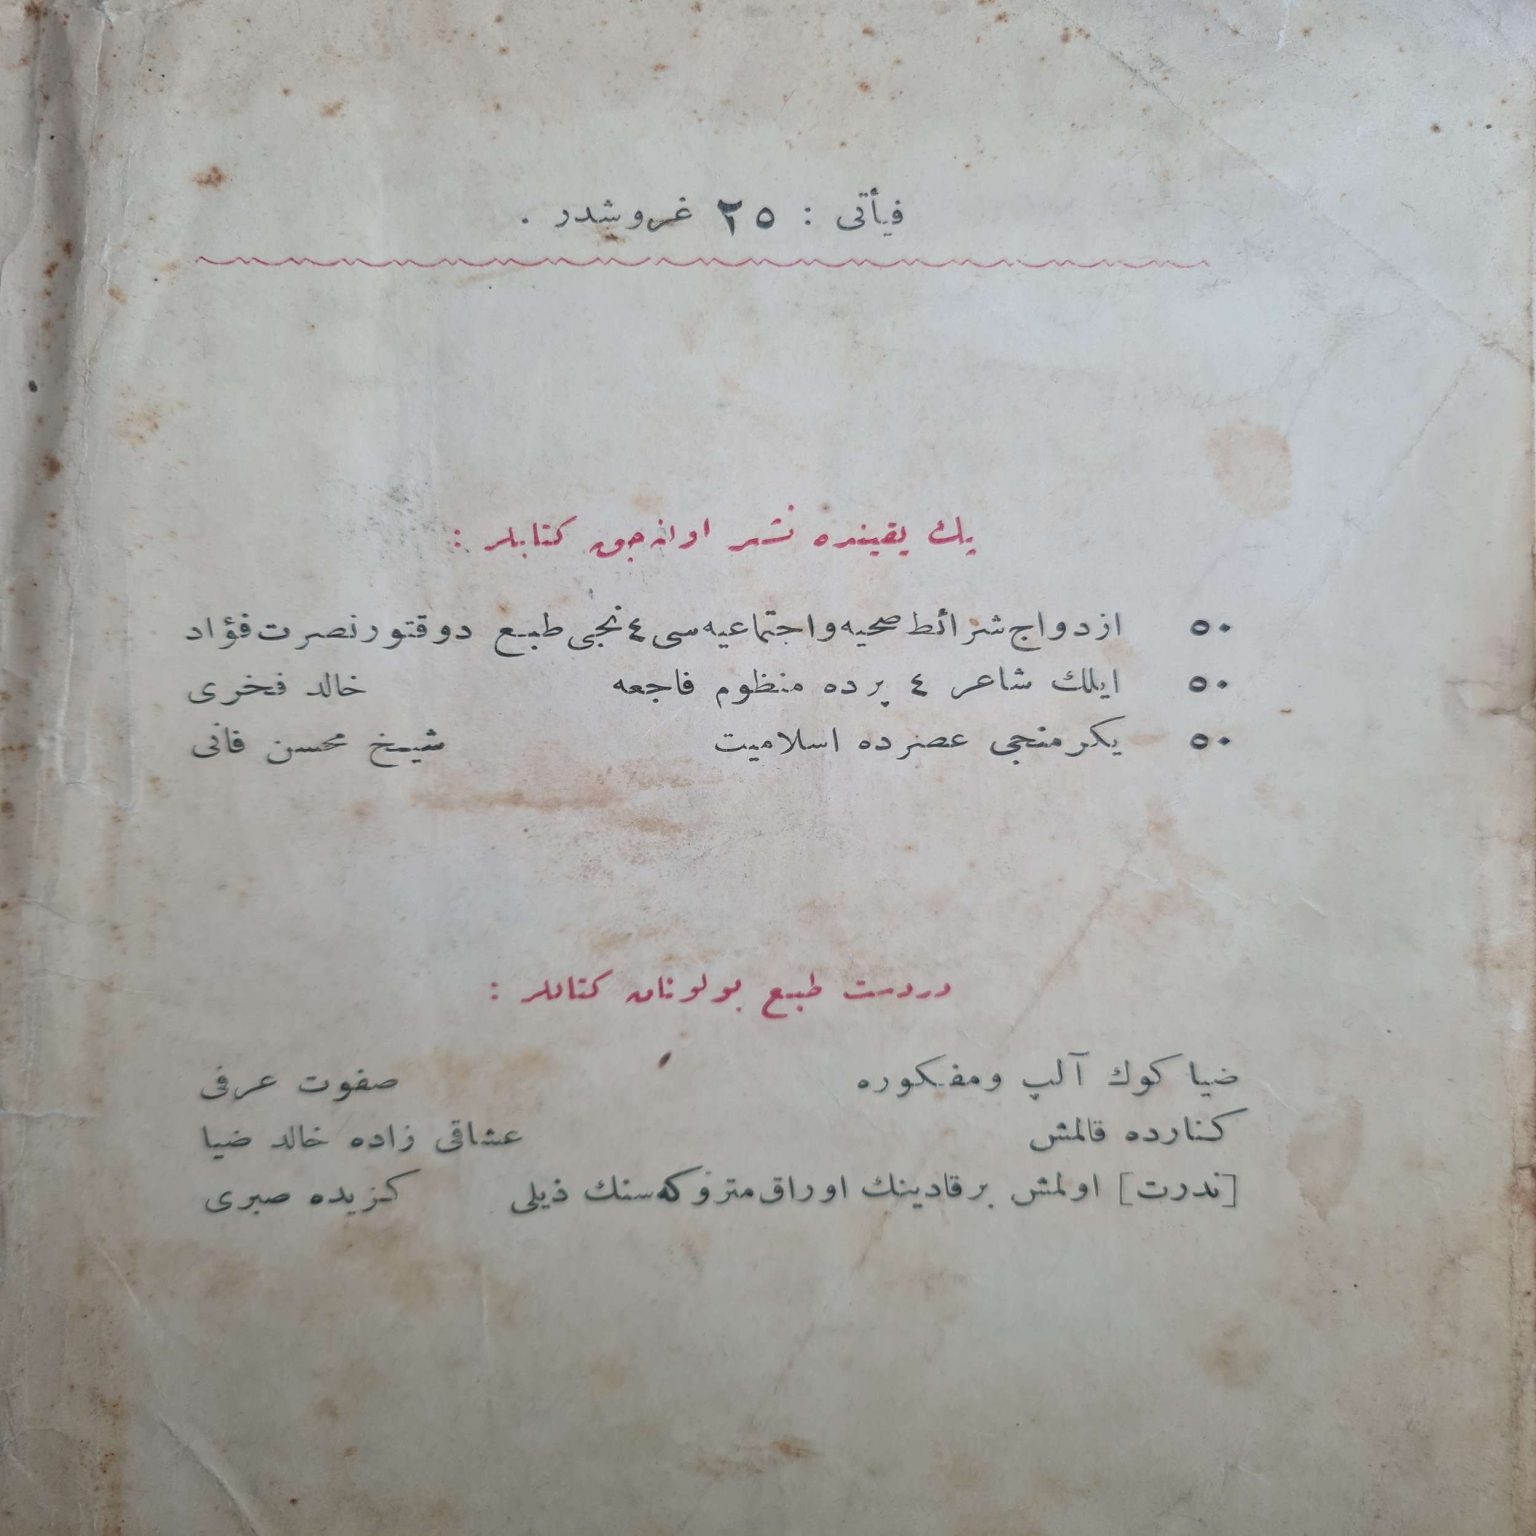 فيأتى : ٢٥ غروشدر .
پك يقينده نشر اولنه‌جق كتابلر :
٥٠ ازدواج شرائط صحيه و اجتماعيه سى ٤ نجى طبع دوقتور نصرت فؤاد
٥٠ ايلك شاعر ٤ پرده منظوم فاجعه خالد فخرى
٥٠ يكرمنجى عصرده اسلاميت شيخ محسن فانى
دردست طبع بولونان كتابلر :
ضيا كوك آلپ ومفكوره صفوت عرفى
كنارده قالمش عشاقى زاده خالد ضيا
[ندرت] اولمش بر قادينك اوراق متروكه سنك ذيلى كزيده صبرى